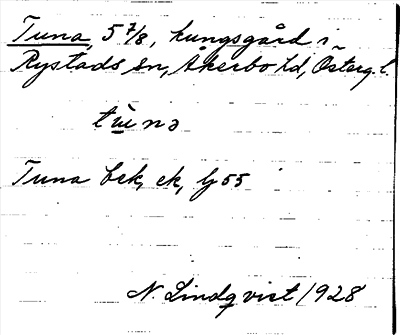 Tuna, 5 7/8, kungsgård i
Rystads sn, Åkerbo hd, Österg. l.
tùnə
Tuna bek, ek, lj 55
N. Lindqvist 1928